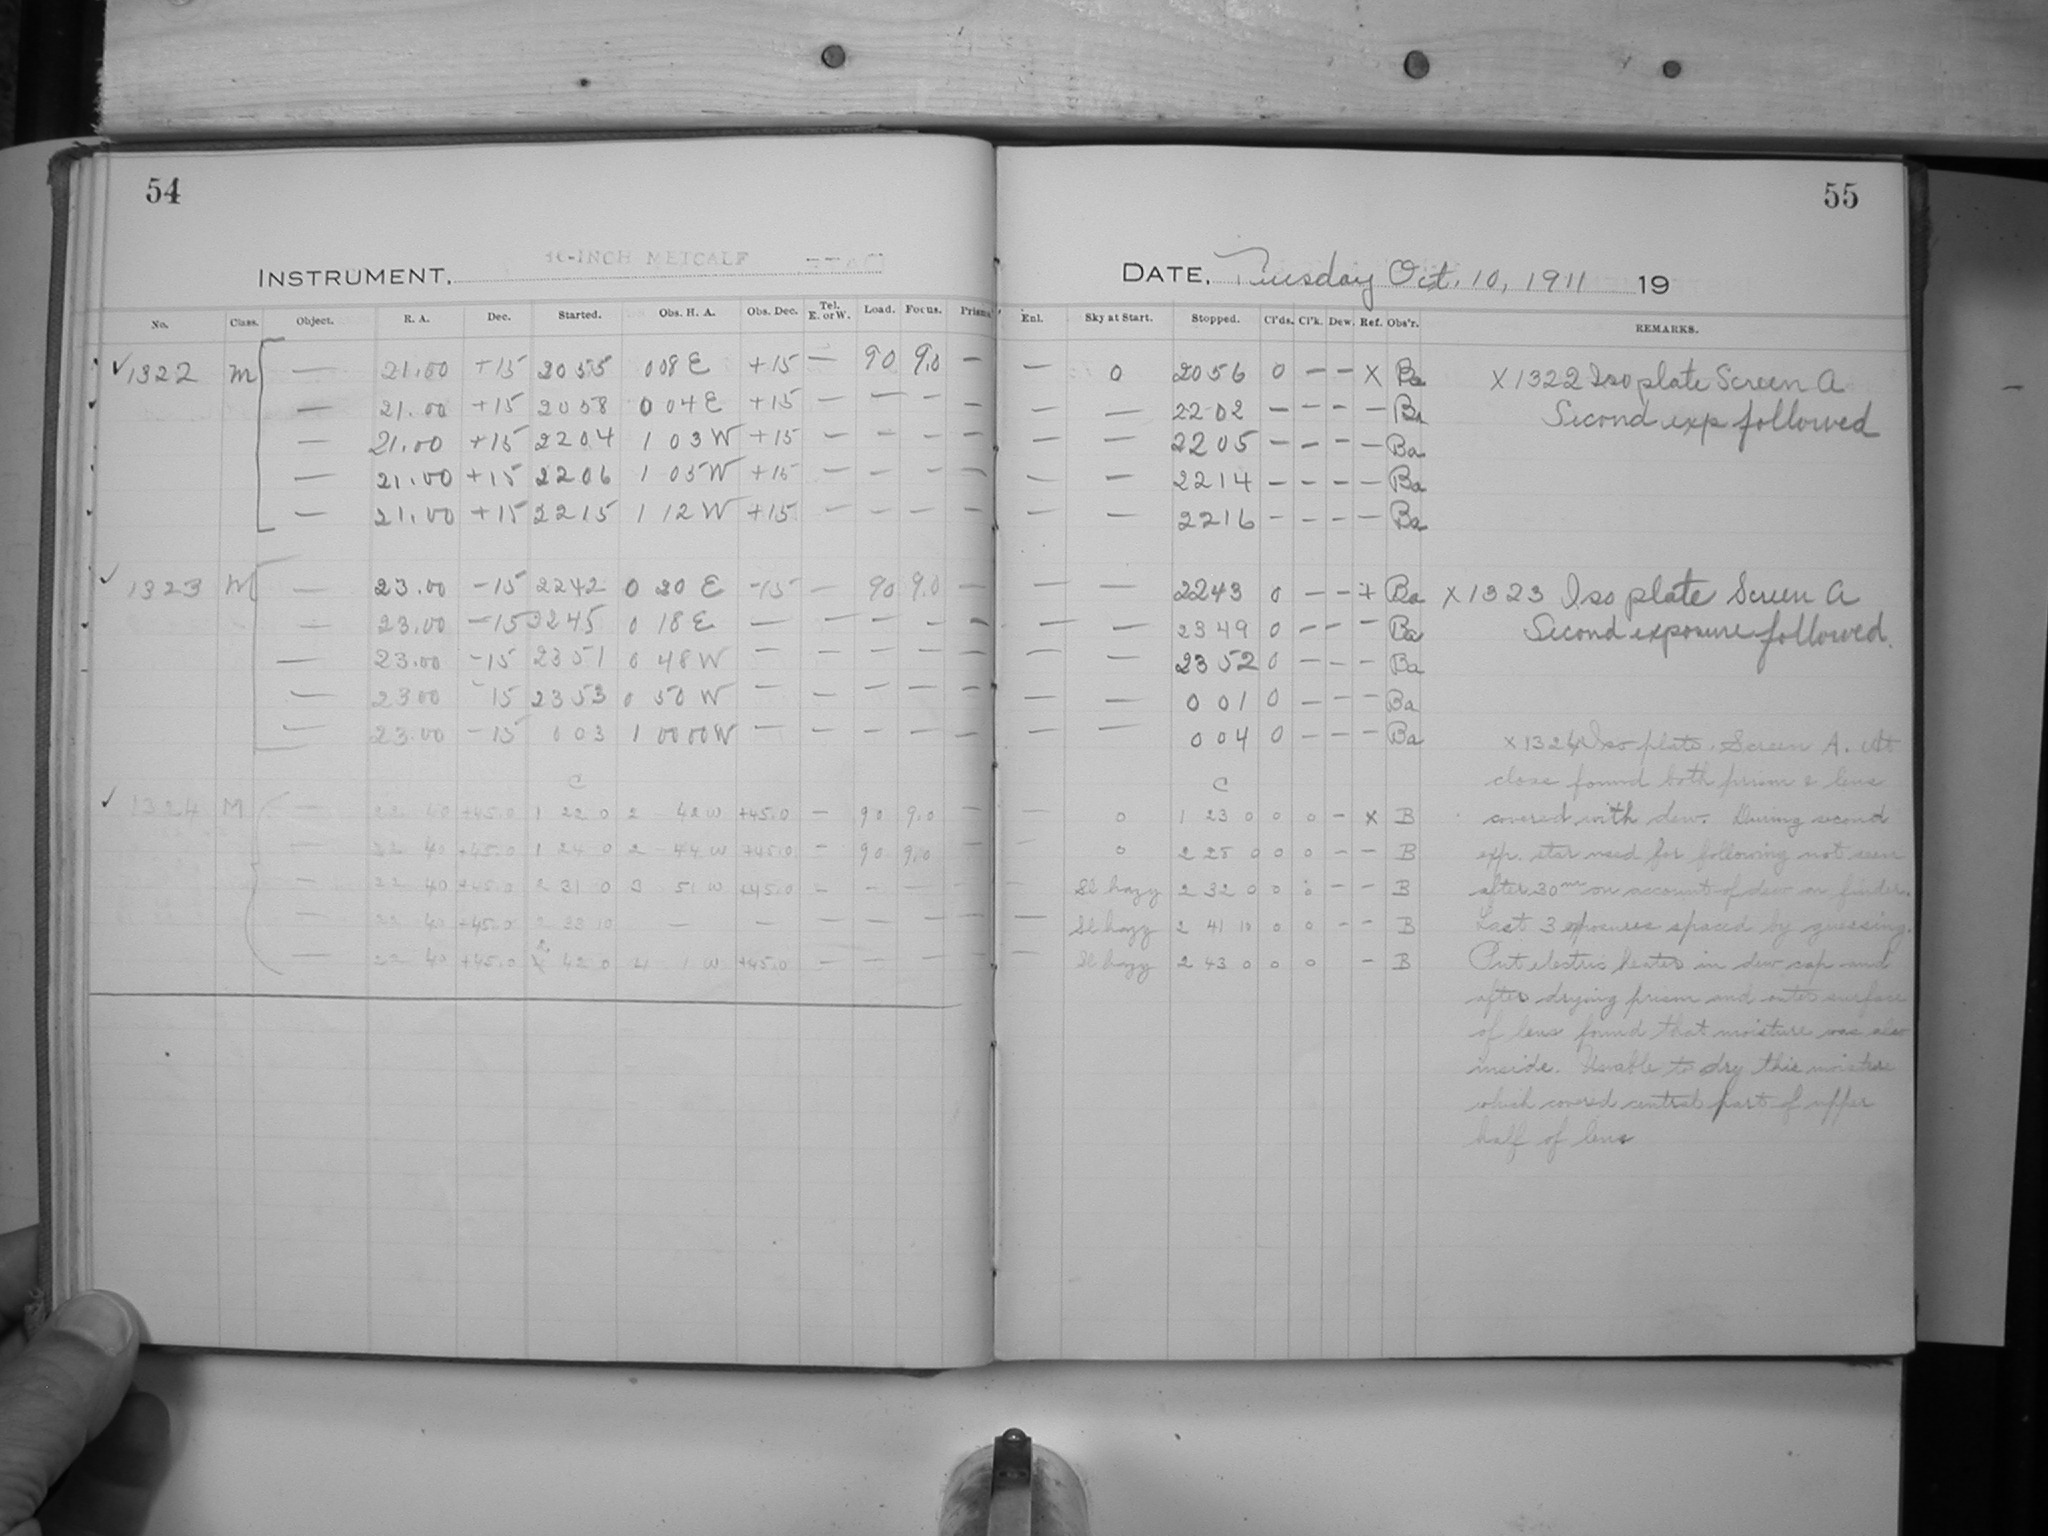 54
INSTRUMENT. 16-INCH METCALF
No. Class. Object. R. A. Dec. Started. Obs. H. A. Obs. Dec. Tel. E. or W. Load. Focus. Prism.
✓ 1322 M — 21.00 +15 2055 0 08 E +15 — 90 9.0 —
— 21.00 +15 2058 0 04 E +15 — — — —
— 21.00 +15 2204 1 03 W +15 — — — —
— 21.00 +15 2206 1 05 W +15 — — — —
— 21.00 +15 2215 1 12 W +15 — — — —
✓ 1323 M — 23.00 -15 2242 0 20 E -15 — 90 9.0 —
— 23.00 -15 2245 0 18 E — — — — —
— 23.00 -15 2351 0 48 W — — — — —
— 23.00 -15 2353 0 50 W — — — — —
— 23.00 -15 0 03 1 00 W — — — — —
C
✓ 1324 M — 22 40 +45.0 1 22 0 2 42 W +45.0 — 90 9.0 —
— 22 40 +45.0 1 24 0 2 44 W +45.0 — 90 9.0 —
— 22 40 +45.0 2 31 0 3 51 W +45.0 — — — —
— 22 40 +45.0 2 33 10 — — — — — —
— 22 40 +45.0 2 42 0 4 1 W +45.0 — — — —
55
DATE. Tuesday Oct. 10, 1911 19
Enl. Sky at Start. Stopped. Cl'ds. Cl'k. Dew. Ref. Obs'r. REMARKS.
— 0 2056 0 — — X Ba X 1322 Iso plate Screen A
— — 2202 — — — — Ba Second exp followed
— — 2205 — — — — Ba
— — 2214 — — — — Ba
— — 2216 — — — — Ba
— — 2243 0 — — + Ba X 1323 Iso plate Screen A
— — 2349 0 — — — Ba Second exposure followed.
— — 2352 0 — — — Ba
— — 0 01 0 — — — Ba
— — 0 04 0 — — — Ba X 1324 Iso plate. Screen A. At
C close found both prism & lens
— 0 1 23 0 0 0 — X B covered with dew. During second
— 0 2 28 0 0 0 — — B exp. star used for following not seen
Sl hazy 2 32 0 0 0 — — B after 30m on account of dew on finder.
— Sl hazy 2 41 10 0 0 — — B Last 3 exposures spaced by guessing.
— Sl hazy 2 43 0 0 0 — B Put electric heater in dew cap and
after drying prism and outer surface
of lens found that moisture was also
inside. Unable to dry this moisture
which covered central part of upper
half of lens